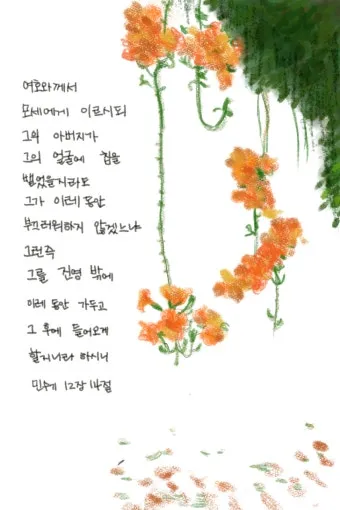 여호와께서
모세에게 이르시되
그의 아버지가
그의 얼굴에 침을
뱉었을지라도
그가 이레 동안
부끄러워하지 않겠느냐
그런즉
그를 진영 밖에
이레 동안 가두고
그 후에 들어오게
할지니라 하시니
민수기 12장 14절